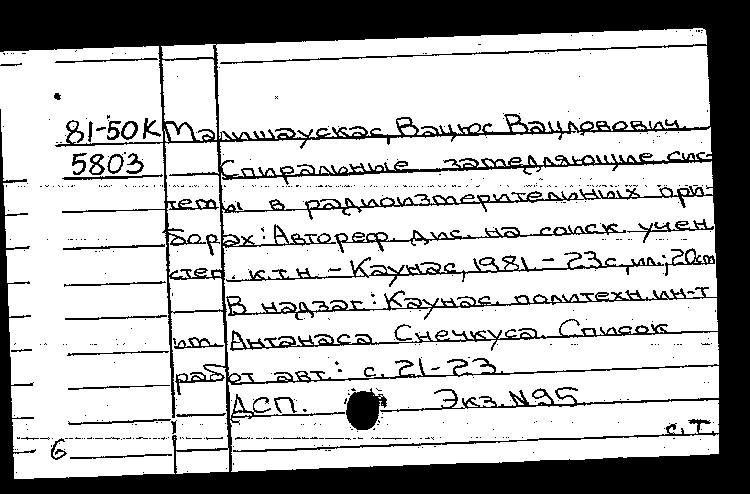 81-50К Малишаускас, Вацюс Вацловович.
5803 Спиральные замедляющие сис-
темы в радиоизмерительных при-
борах: Автореф. дис. на соиск. учен.
степ. к.т.н. - Каунас, 1981. - 23 с., ил.; 20 см
В надзаг.: Каунас. политехн. ин-т
им. Антанаса Снечкуса. Список
работ авт.: с. 21-23.
ДСП. Экз. N 95
с. Т.
6